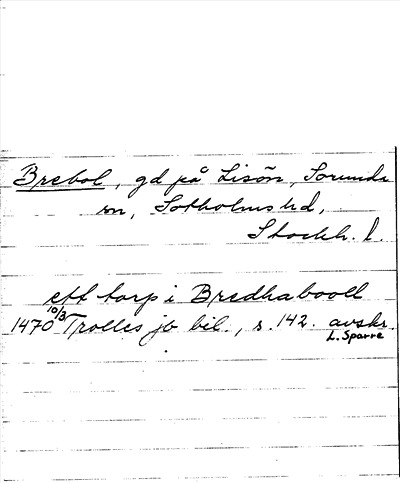 Brebol, gd på Lisön, Sorunda
sn, Sotholms hd,
Stockh. l.
ett torp i Bredhabooll
1470 10/3 Trolles jb bil., s. 142. avskr.
L. Sparre